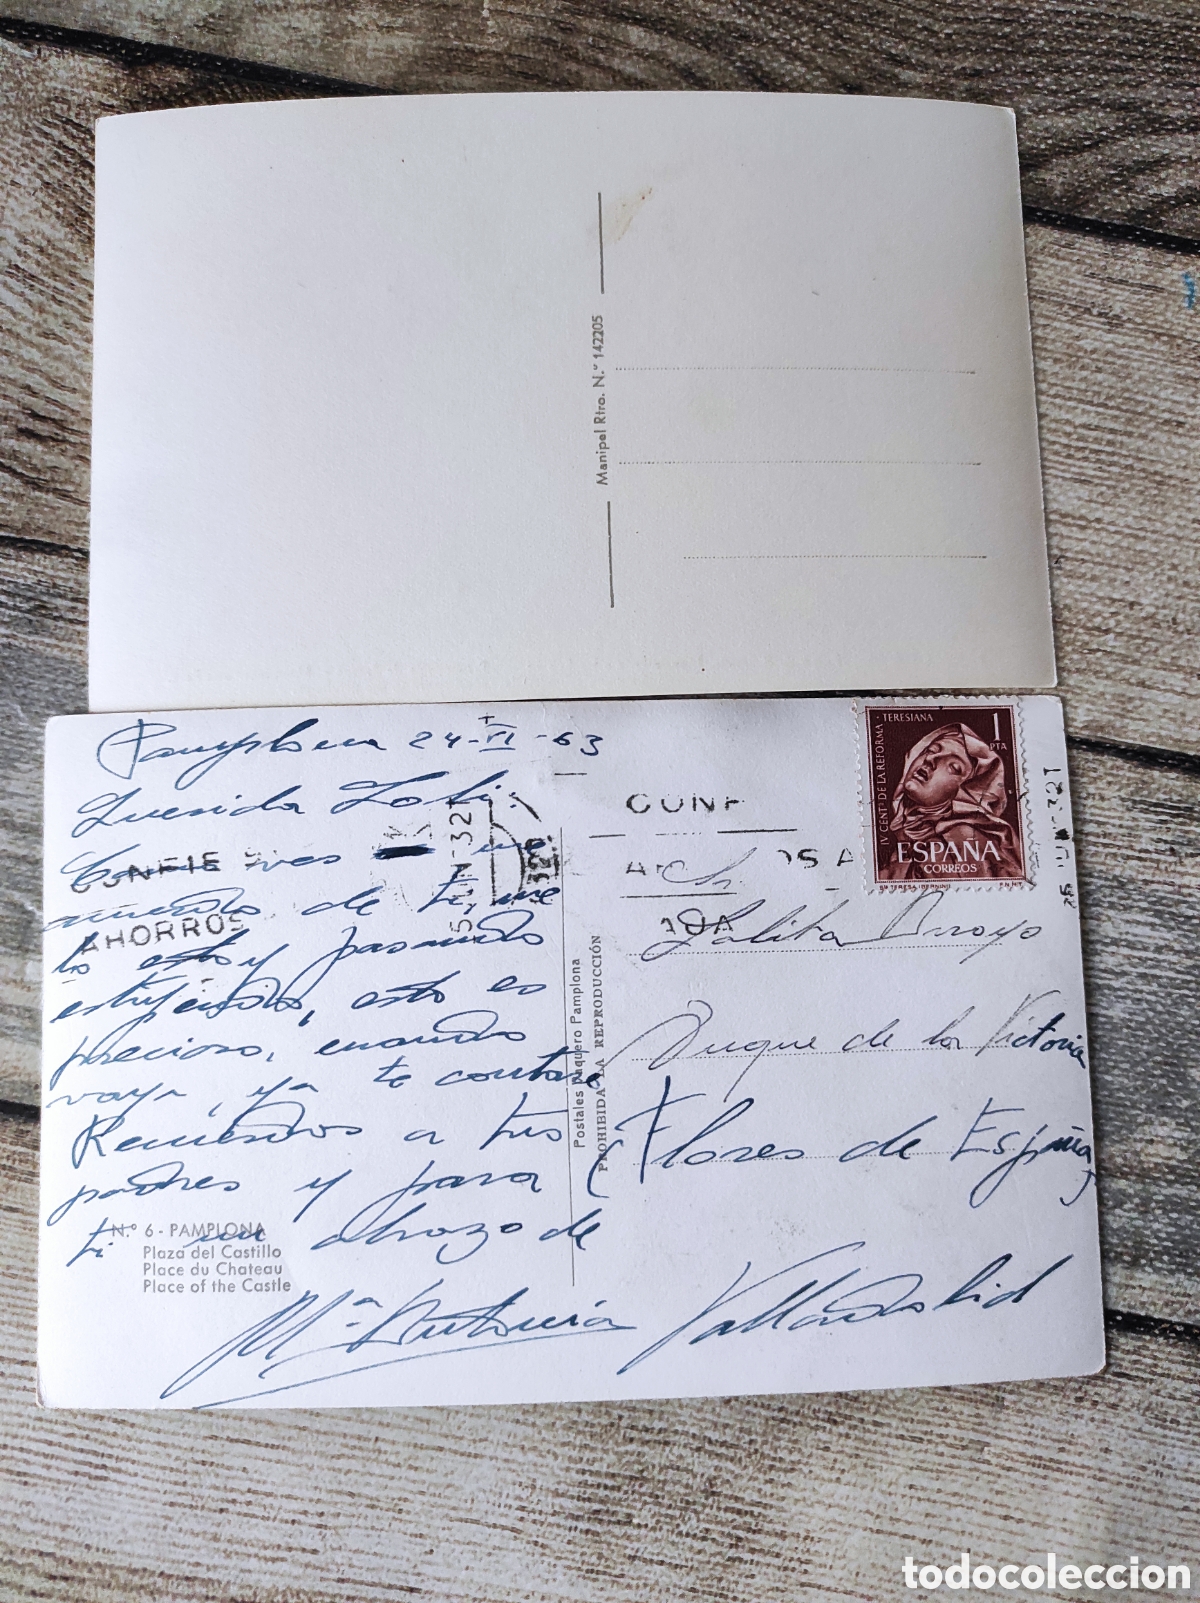 Manipel Rtro. N.º 142205
Pamplona 24-VI-63
Querida Loli:
Como ves me
acuerdo de ti, me
lo estoy pasando
estupendo, esto es
precioso, cuando
vaya, ya te contaré
Recuerdos a tus
padres y para
ti un abrazo de
Mª Antonia
N.º 6 - PAMPLONA
Plaza del Castillo
Place du Chateau
Place of the Castle
CONFIE S
AHORROS
Postales Vaquero Pamplona
PROHIBIDA LA REPRODUCCIÓN
IV CENTº DE LA REFORMA TERESIANA
1
PTA
ESPAÑA
CORREOS
STA TERESA (BERNINI) F.N.M.T.
CONF
Lolita Arroyo
Duque de la Victoria
(Flores de España)
Valladolid
todocoleccion